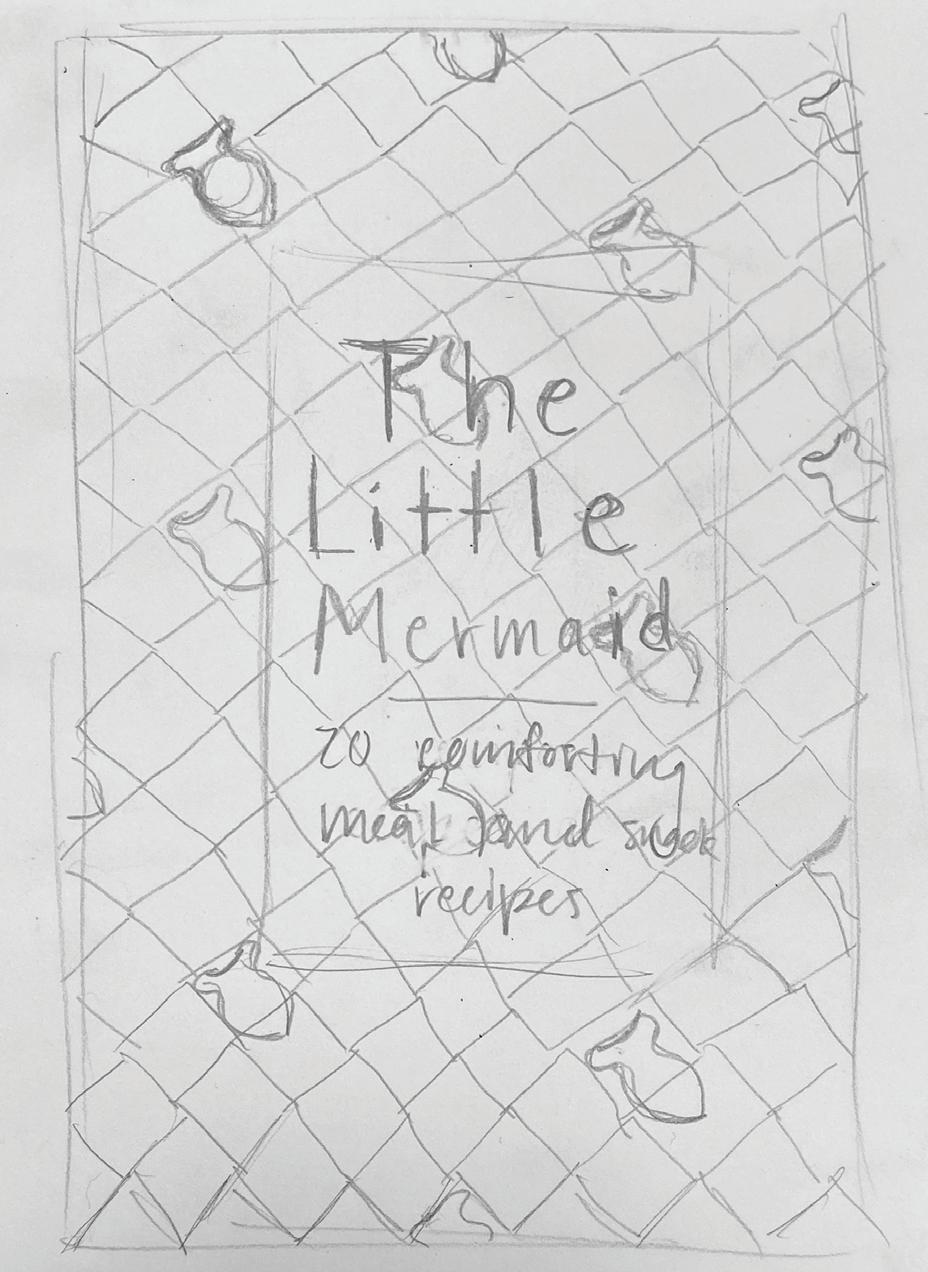 The
Little
Mermaid
20 comforting
meal and
recipes